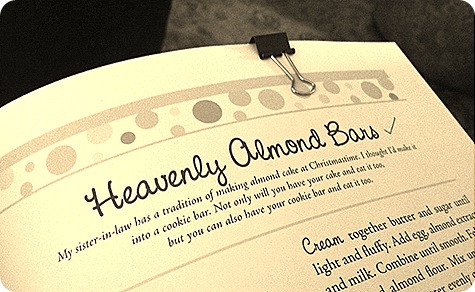 Heavenly Almond Bars ✓
My sister-in-law has a tradition of making almond cake at Christmastime. I thought I'd make it
into a cookie bar. Not only will you have your cake and eat it too,
but you can also have your cookie bar and eat it too.
Cream together butter and sugar until
light and fluffy. Add egg, almond extra
and milk. Combine until smooth. F
and almond flour. Mix
evenly